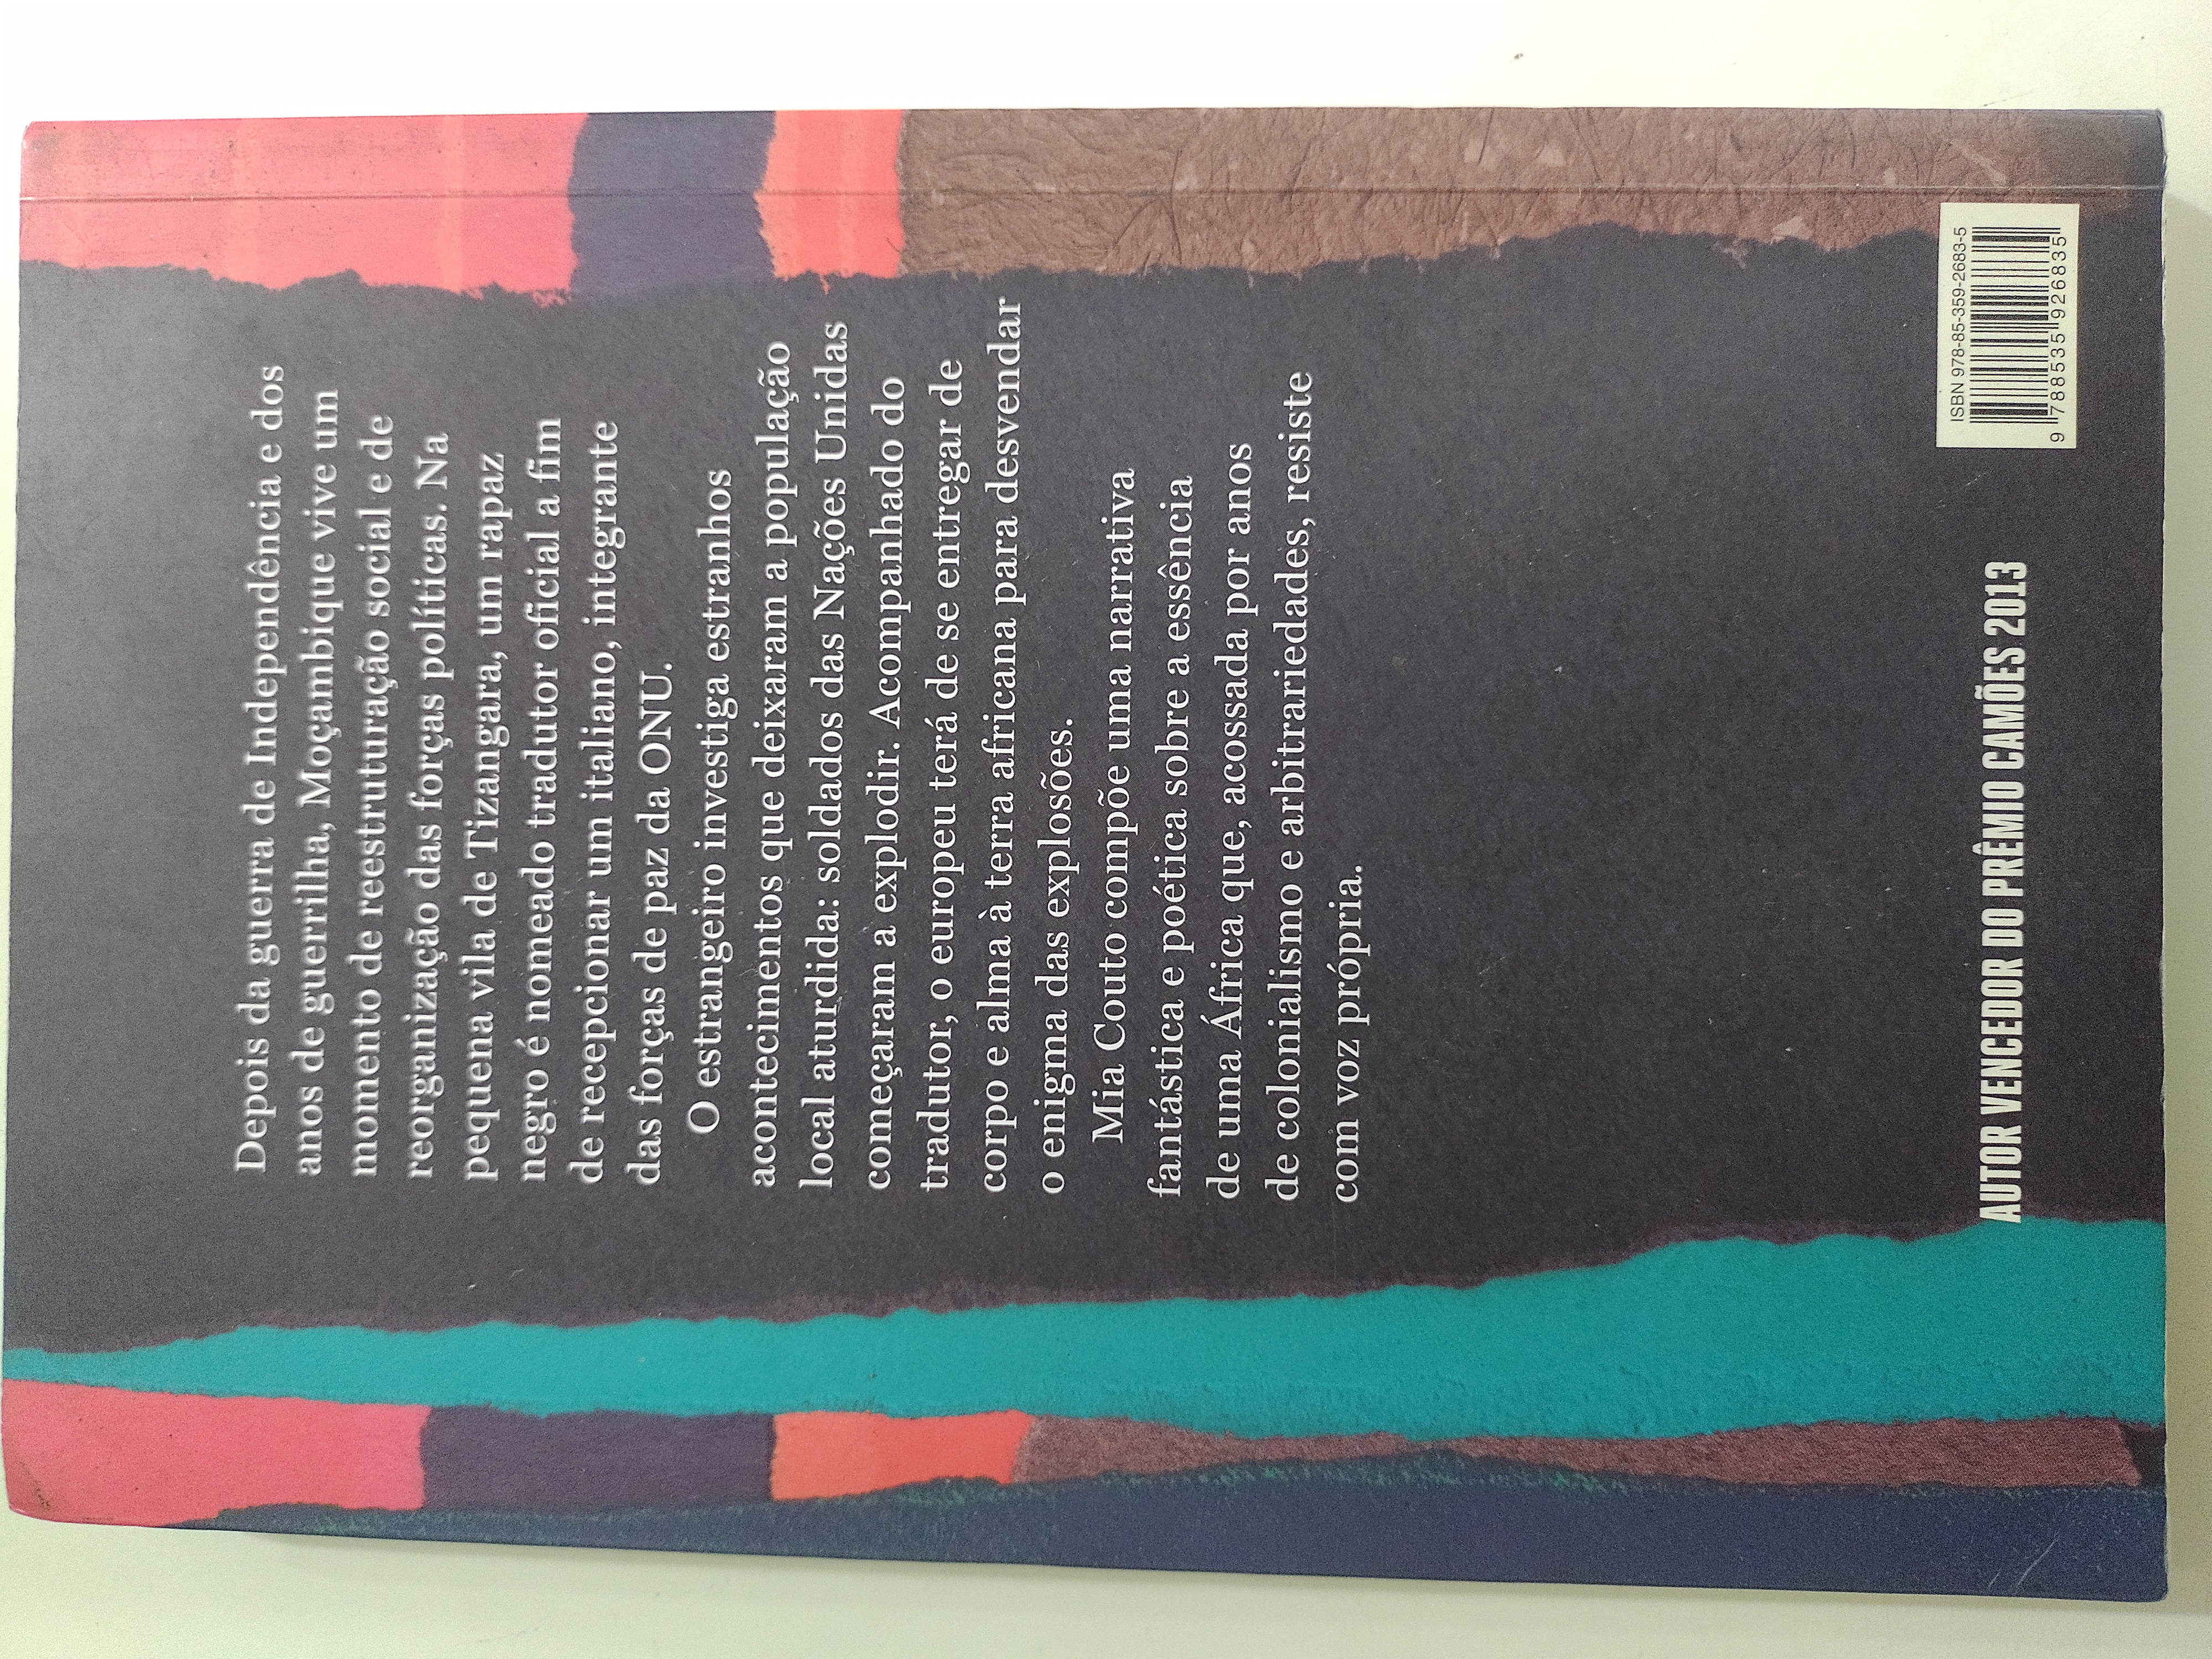 Depois da guerra de Independência e dos
anos de guerrilha, Moçambique vive um
momento de reestruturação social e de
reorganização das forças políticas. Na
pequena vila de Tizangara, um rapaz
negro é nomeado tradutor oficial a fim
de recepcionar um italiano, integrante
das forças de paz da ONU.
O estrangeiro investiga estranhos
acontecimentos que deixaram a população
local aturdida: soldados das Nações Unidas
começaram a explodir. Acompanhado do
tradutor, o europeu terá de se entregar de
corpo e alma à terra africana para desvendar
o enigma das explosões.
Mia Couto compõe uma narrativa
fantástica e poética sobre a essência
de uma África que, acossada por anos
de colonialismo e arbitrariedades, resiste
com voz própria.
AUTOR VENCEDOR DO PRÊMIO CAMÕES 2013
ISBN 978-85-359-2683-5
9 788535 926835